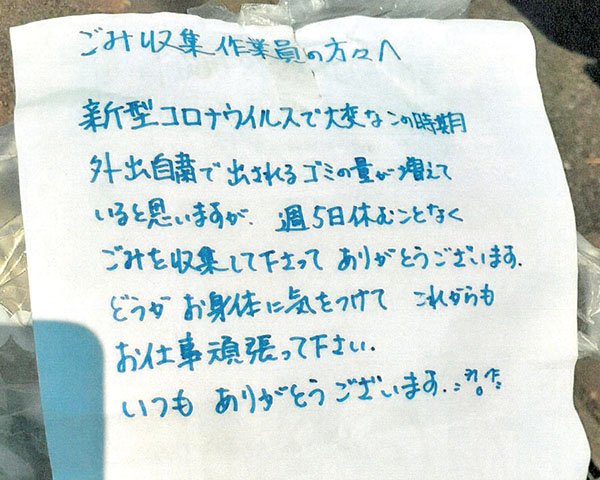 ごみ収集作業員の方々へ
新型コロナウイルスで大変なこの時期
外出自粛で出されるゴミの量が増えて
いると思いますが、週5日休むことなく
ごみを収集して下さって ありがとうございます.
どうか お身体に気をつけて これからも
お仕事頑張って下さい.
いつも ありがとうございます.